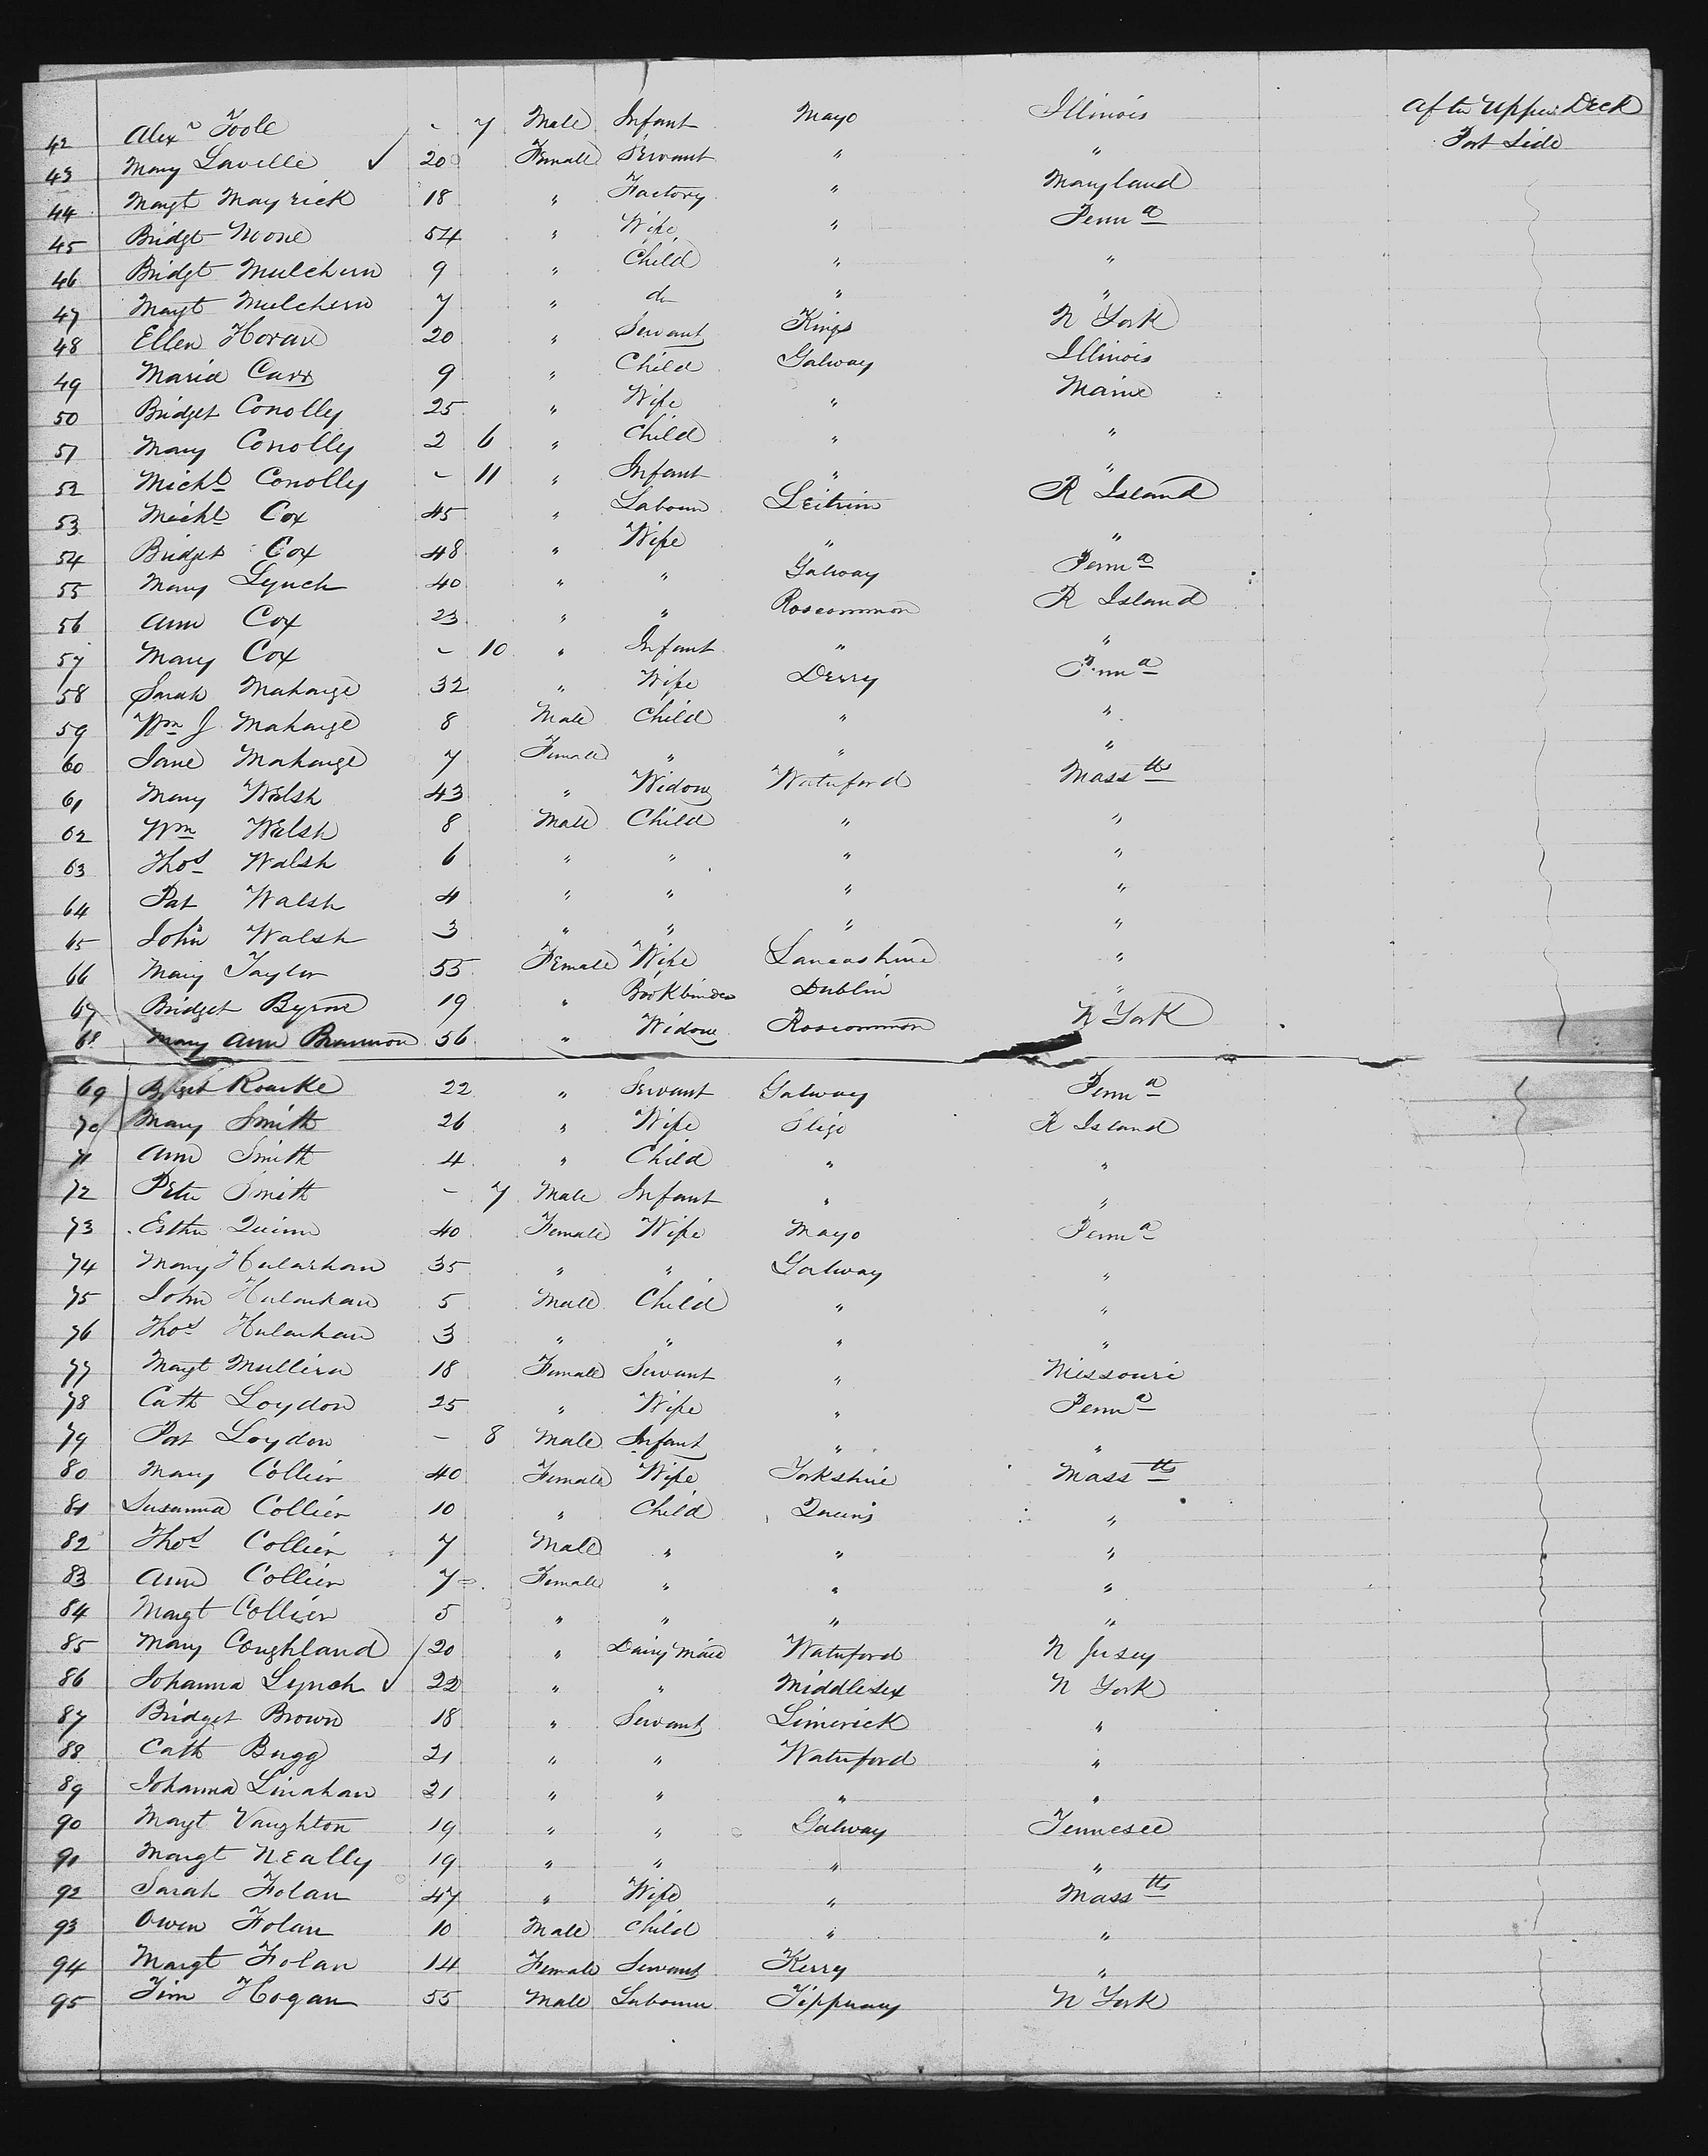 42 Alexr Toole - 7 Male Infant Mayo Illinois After Upper Deck
43 Mary Lavelle ✓ 20 Female Servant " " Port Side
44 Margt Mayrick 18 " Factory " Maryland
45 Bridgt Mone 54 " Wife " Penna
46 Bridgt Mulchern 9 " Child " "
47 Margt Mulchern 7 " do " "
48 Ellen Horan 20 " Servant Kings N York
49 Maria Carr 9 " Child Galway Illinois
50 Bridget Conolly 25 " Wife " Maine
51 Mary Conolly 2 6 " Child " "
52 Michl Conolly - 11 " Infant " "
53 Michl Cox 45 " Labourer Leitrim R Island
54 Bridget Cox 48 " Wife " "
55 Mary Lynch 40 " " Galway Penna
56 Ann Cox 23 " " Roscommon R Island
57 Mary Cox - 10 " Infant " "
58 Sarah Maharge 32 " Wife Derry Penna
59 Wm J Maharge 8 Male Child " "
60 Jane Maharge 7 Female " " "
61 Mary Walsh 43 " Widow Waterford Masstts
62 Wm Walsh 8 Male Child " "
63 Thos Walsh 6 " " " "
64 Pat Walsh 4 " " " "
65 John Walsh 3 " " " "
66 Mary Taylor 55 Female Wife Lancashire "
67 Bridget Byrne 19 " Bookbinder Dublin "
68 Mary Ann Brannon 56 " Widow Roscommon N York
69 Bridget Rourke 22 " Servant Galway Penna
70 Mary Smith 26 " Wife Sligo R Island
71 Ann Smith 4 " Child " "
72 Peter Smith - 7 Male Infant " "
73 Esther Quinn 40 Female Wife Mayo Penna
74 Mary Hularhan 35 " " Galway "
75 John Hularhan 5 Male Child " "
76 Thos Hularhan 3 " " " "
77 Margt Mullira 18 Female Servant " Missouri
78 Cath Loydon 25 " Wife " Penna
79 Pat Loydon - 8 Male Infant " "
80 Mary Collier 40 Female Wife Yorkshire Masstts
81 Susanna Collier 10 " Child Queens "
82 Thos Collier 7 Male " " "
83 Ann Collier 7 Female " " "
84 Margt Collier 5 " " " "
85 Mary Coughland / 20 " Dairy Maid Waterford N Jersey
86 Johanna Lynch ✓ 22 " " Middlesex N York
87 Bridget Brown 18 " Servant Limerick "
88 Cath Bugg 21 " " Waterford "
89 Johanna Linahan 21 " " " "
90 Margt Vaughton 19 " " Galway Tennesee
91 Margt Neally 19 " " " "
92 Sarah Folan 47 " Wife " Masstts
93 Owen Folan 10 Male Child " "
94 Margt Folan 14 Female Servant Kerry "
95 Tim Hogan 55 Male Labourer Tipperary N York